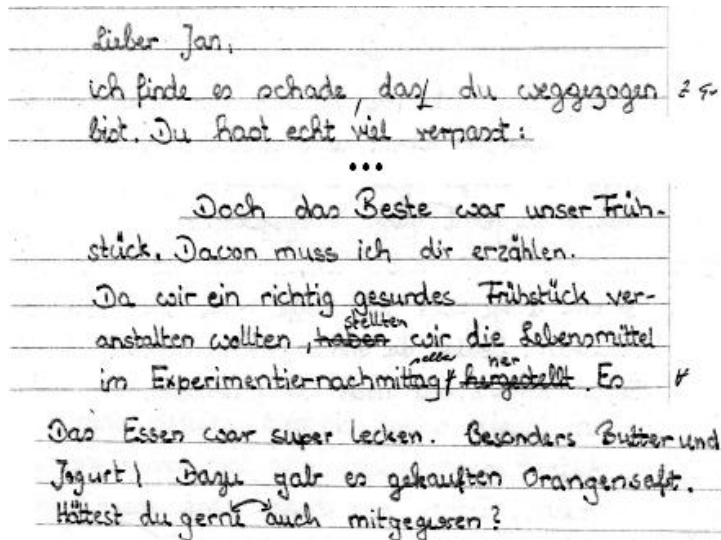 Lieber Jan,
ich finde es schade, das du weggezogen
bist. Du hast echt viel verpasst:
...
Doch das Beste war unser Früh-
stück. Davon muss ich dir erzählen.
Da wir ein richtig gesundes Frühstück ver-
anstalten wollten, haben stellten wir die Lebensmittel
im Experimentiernachmittag selber hergestellt her. Es
Das Essen war super lecker. Besonders Butter und
Jogurt! Dazu gab es gekauften Orangensaft.
Hättest du gerne auch mitgegessen?